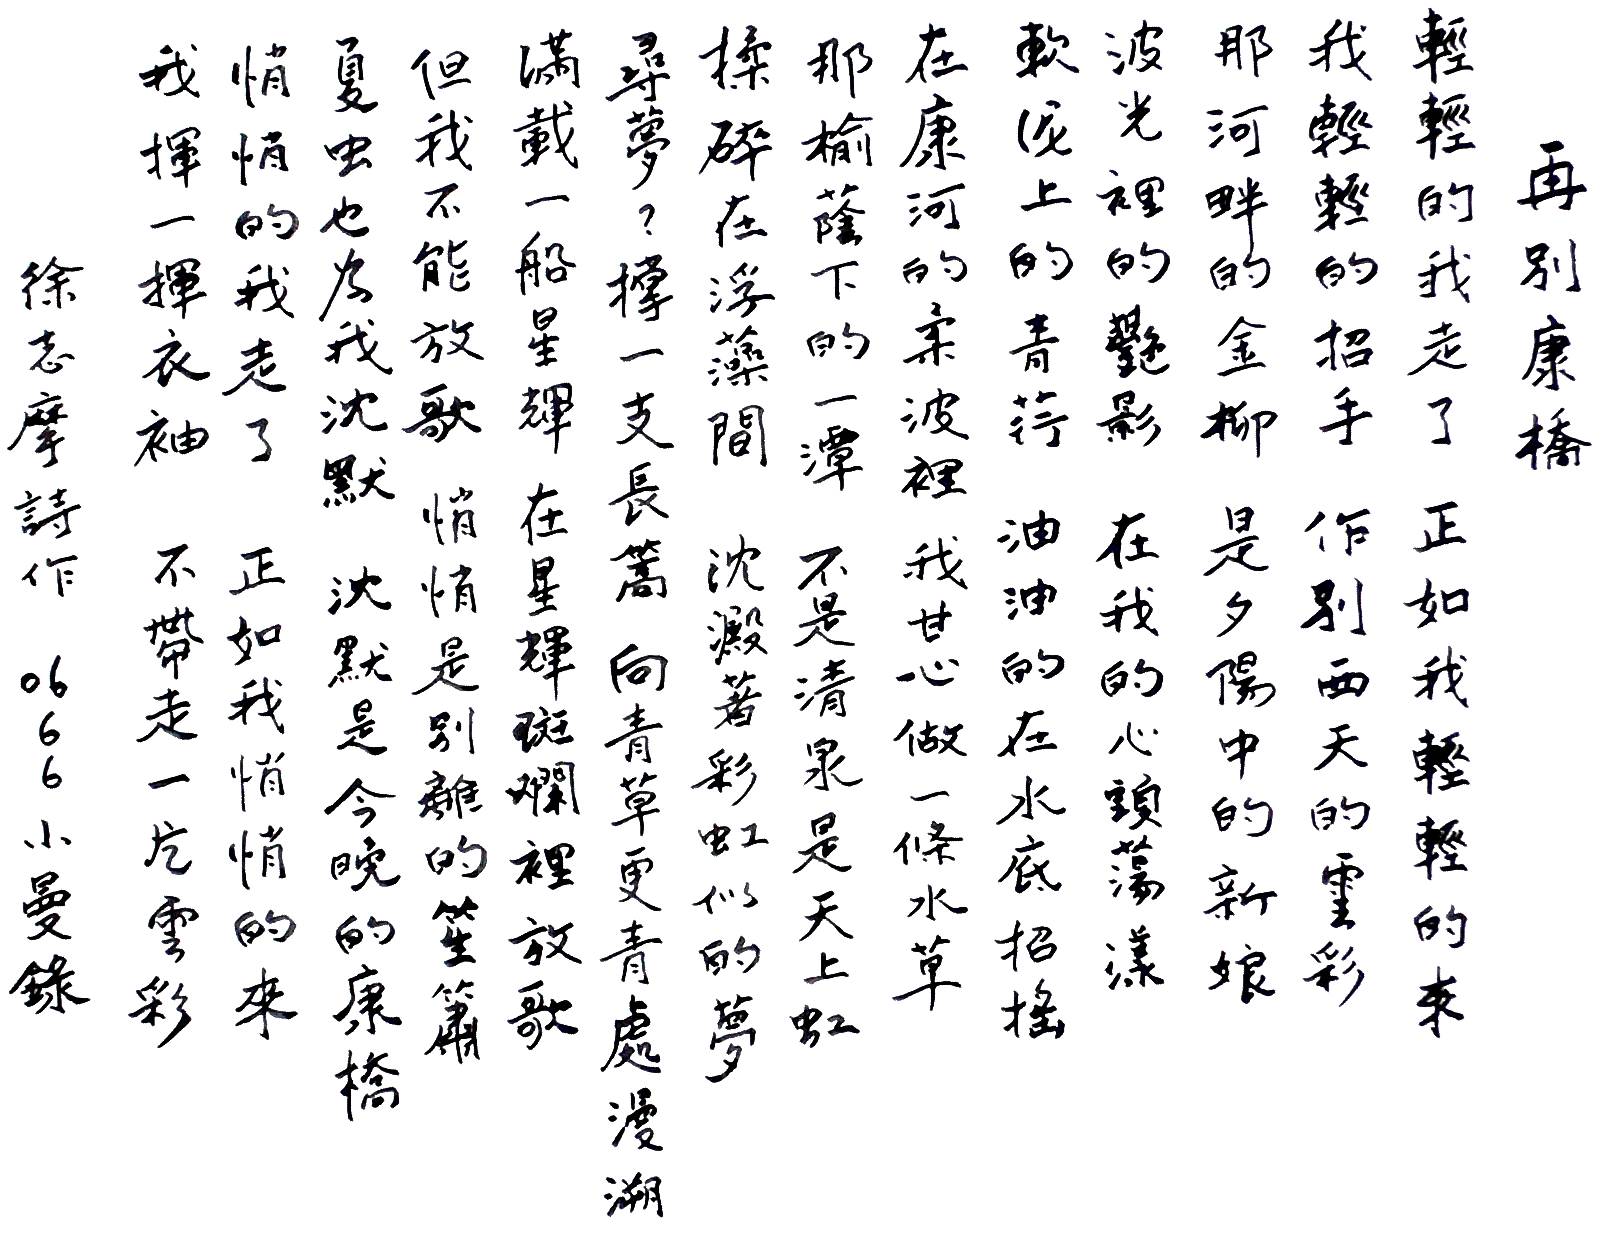 再別康橋
輕輕的我走了 正如我輕輕的來
我輕輕的招手 作別西天的雲彩
那河畔的金柳 是夕陽中的新娘
波光裡的艷影 在我的心頭蕩漾
軟泥上的青荇 油油的在水底招搖
在康河的柔波裡 我甘心做一條水草
那榆蔭下的一潭 不是清泉是天上虹
揉碎在浮藻間 沈澱著彩虹似的夢
尋夢？撐一支長篙 向青草更青處漫溯
滿載一船星輝 在星輝斑斕裡放歌
但我不能放歌 悄悄是別離的笙簫
夏虫也為我沈默 沈默是今晚的康橋
悄悄的我走了 正如我悄悄的來
我揮一揮衣袖 不帶走一片雲彩
徐志摩詩作 06 6 6 小曼錄